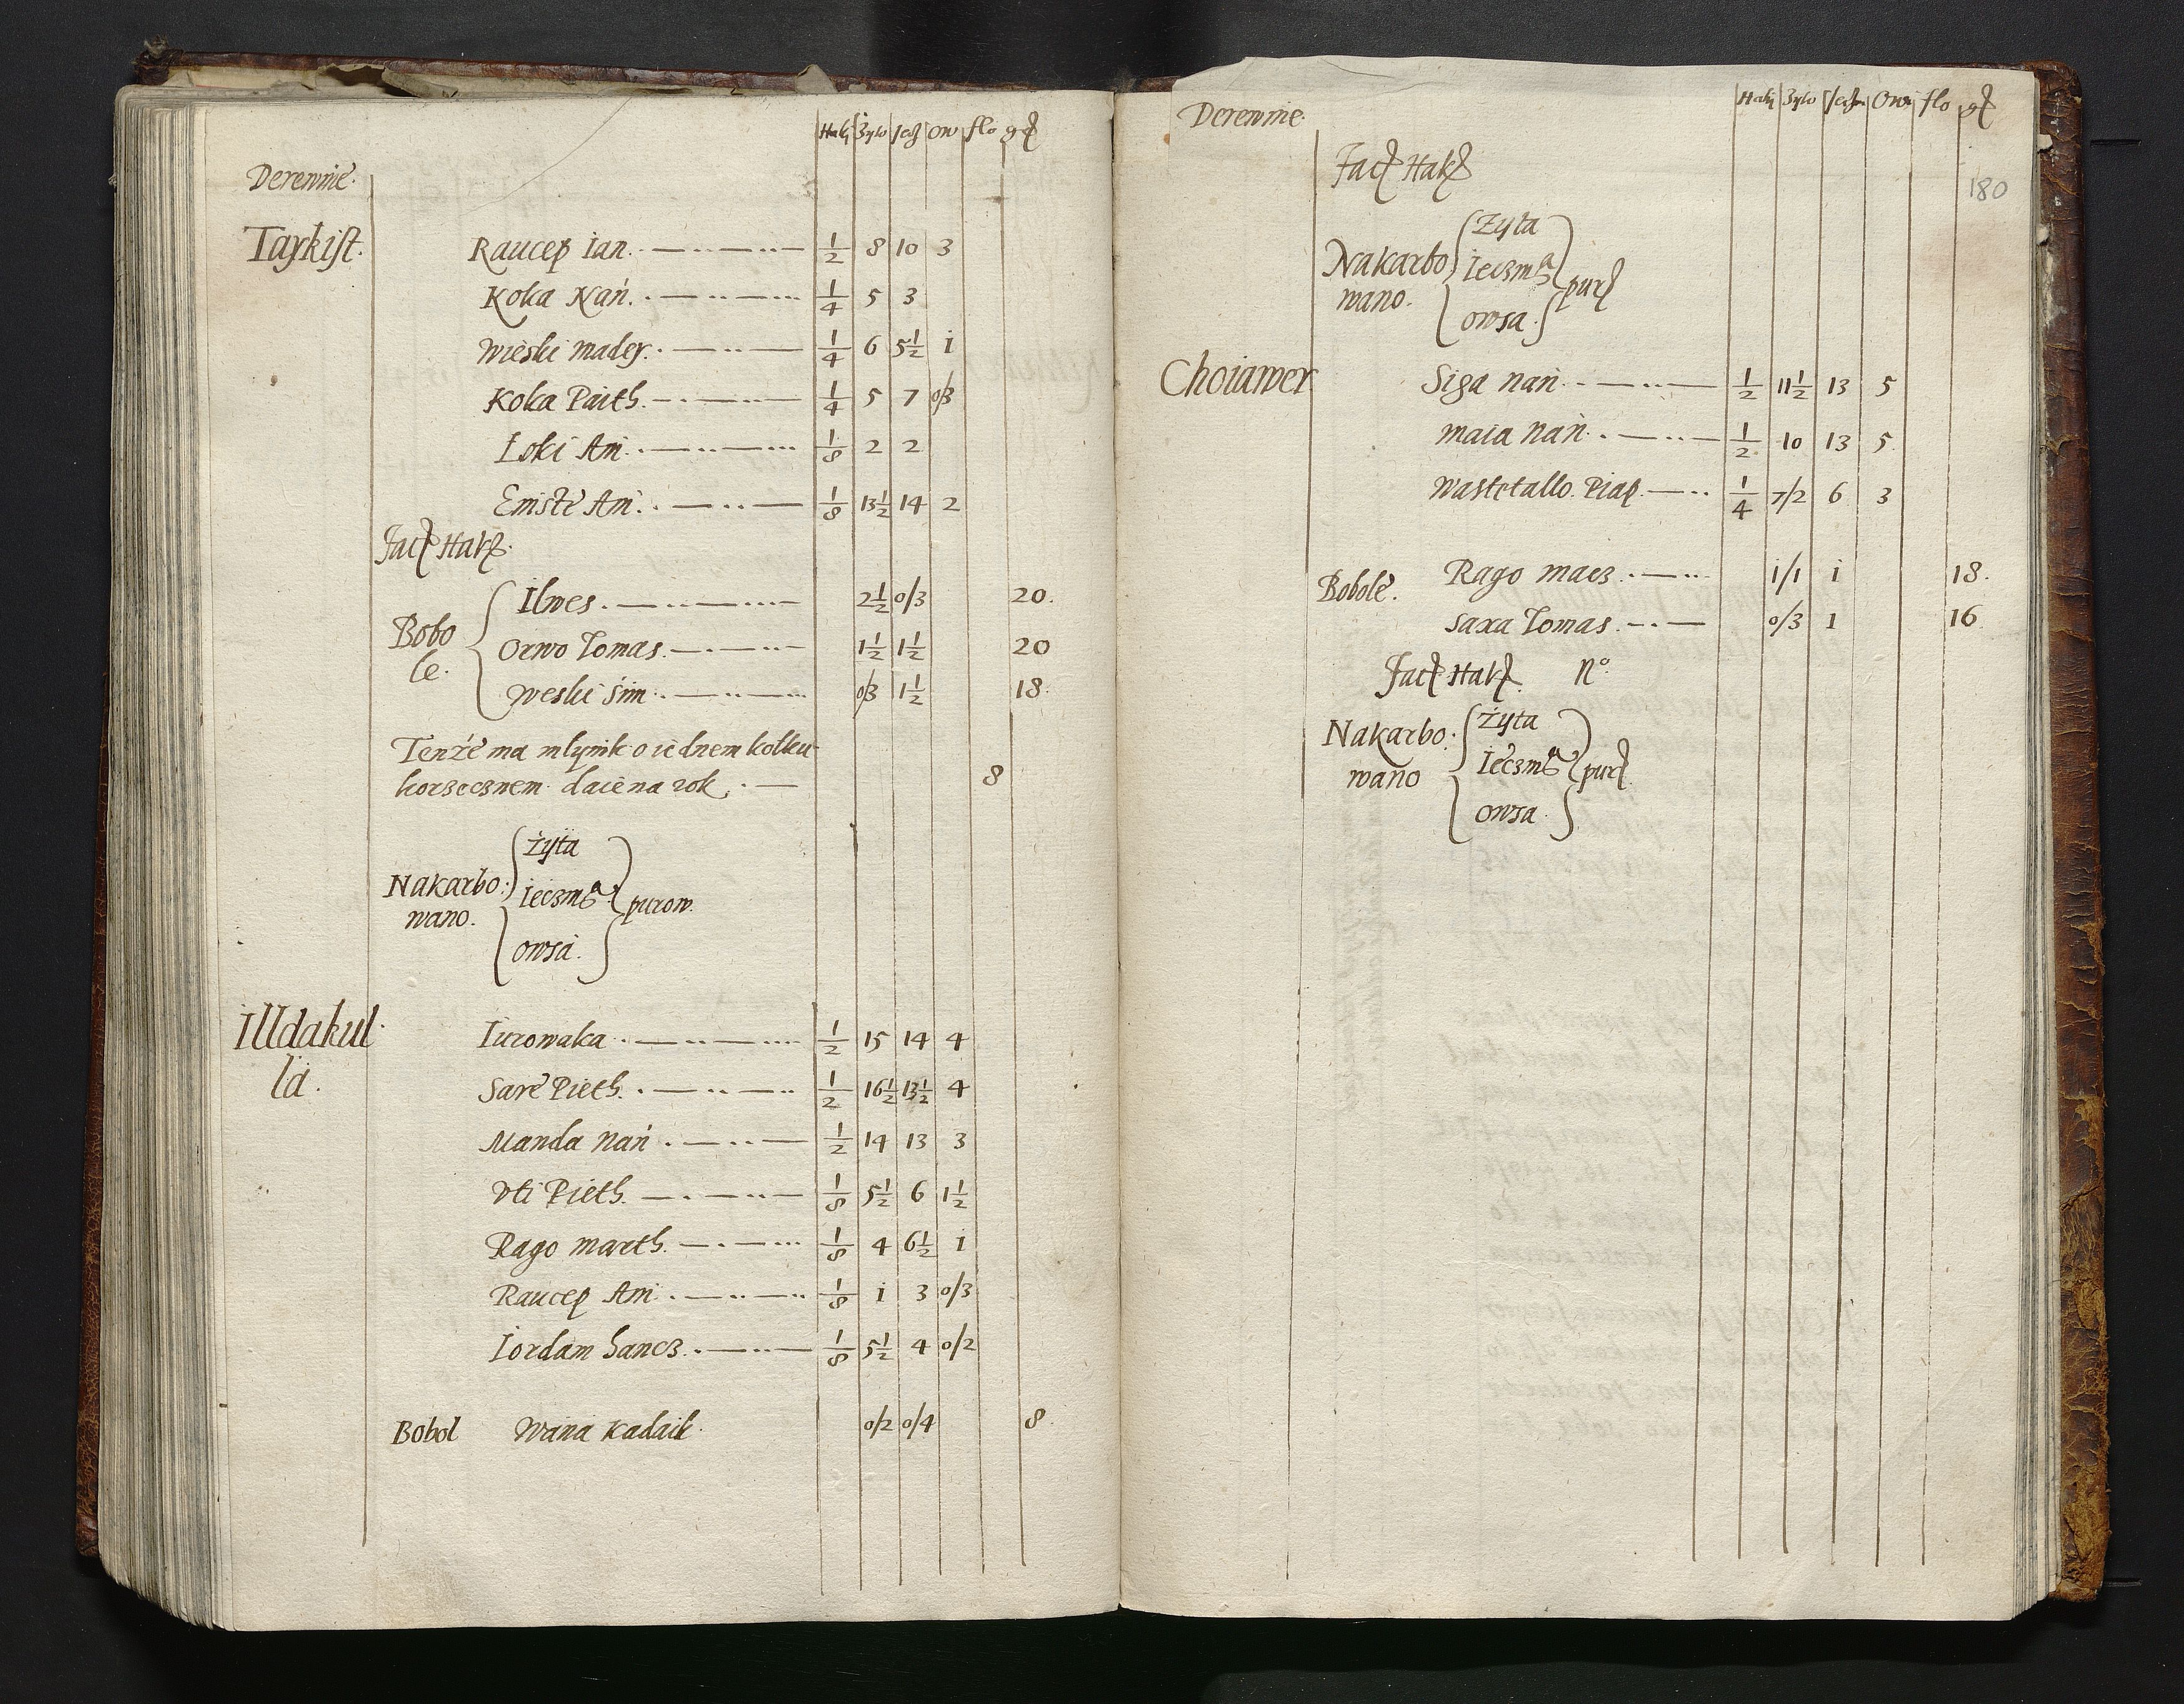 Haki Żyto Jecz Ow flo gr
Derewnie.
Taykist. Raucep Ian. 1/2 8 10 3
Koka Nań. 1/4 5 3
Wieski Madej. 1/4 6 5 1/2 i
Koka Paith. 1/4 5 7 0/3
Loki An. 1/8 2 2
Emste An. 1/8 13 1/2 14 2
Fact Hak
Bobo
le.
Ilwes. 2 1/2 0/3 20.
Orwo Tomas. 1 1/2 1 1/2 20
Weski Sim. 0/3 1 1/2 18.
Tenże ma mlynik o iednem kolku
korzecznem daie na rok. 8
Nakarbo:
wano.
Żyta
Ieczma
owsa.
purow.
Illdakul
la.
Iurowaka. 1/2 15 14 4
Sare Pieth. 1/2 16 1/2 13 1/2 4
Manda Nań. 1/2 14 13 3
Vti Pieth. 1/8 5 1/2 6 1 1/2
Rago Marth. 1/8 4 6 1/2 i
Raucep An. 1/8 i 3 0/3
Iordam hancz. 1/8 5 1/2 4 0/2
Bobol Wana Kadaik. 0/2 0/4 8.
Haki Żyto Jeczm Ows flo gr
Derewnie.
180
Fact Hak
Nakarbo
wano.
Żyta
Ieczma
owsa.
pur
Choiawer Siga Nań. 1/2 11 1/2 13 5
Maia Nań. 1/2 10 13 5
Wastetallo. Piap. 1/4 7/2 6 3
Bobole. Rago Maes. i/1 i 18.
Saxa Tomas. 0/3 1 16
Fact Hak. nº
Nakarbo:
wano
Żyta
Ieczma
owsa.
pur